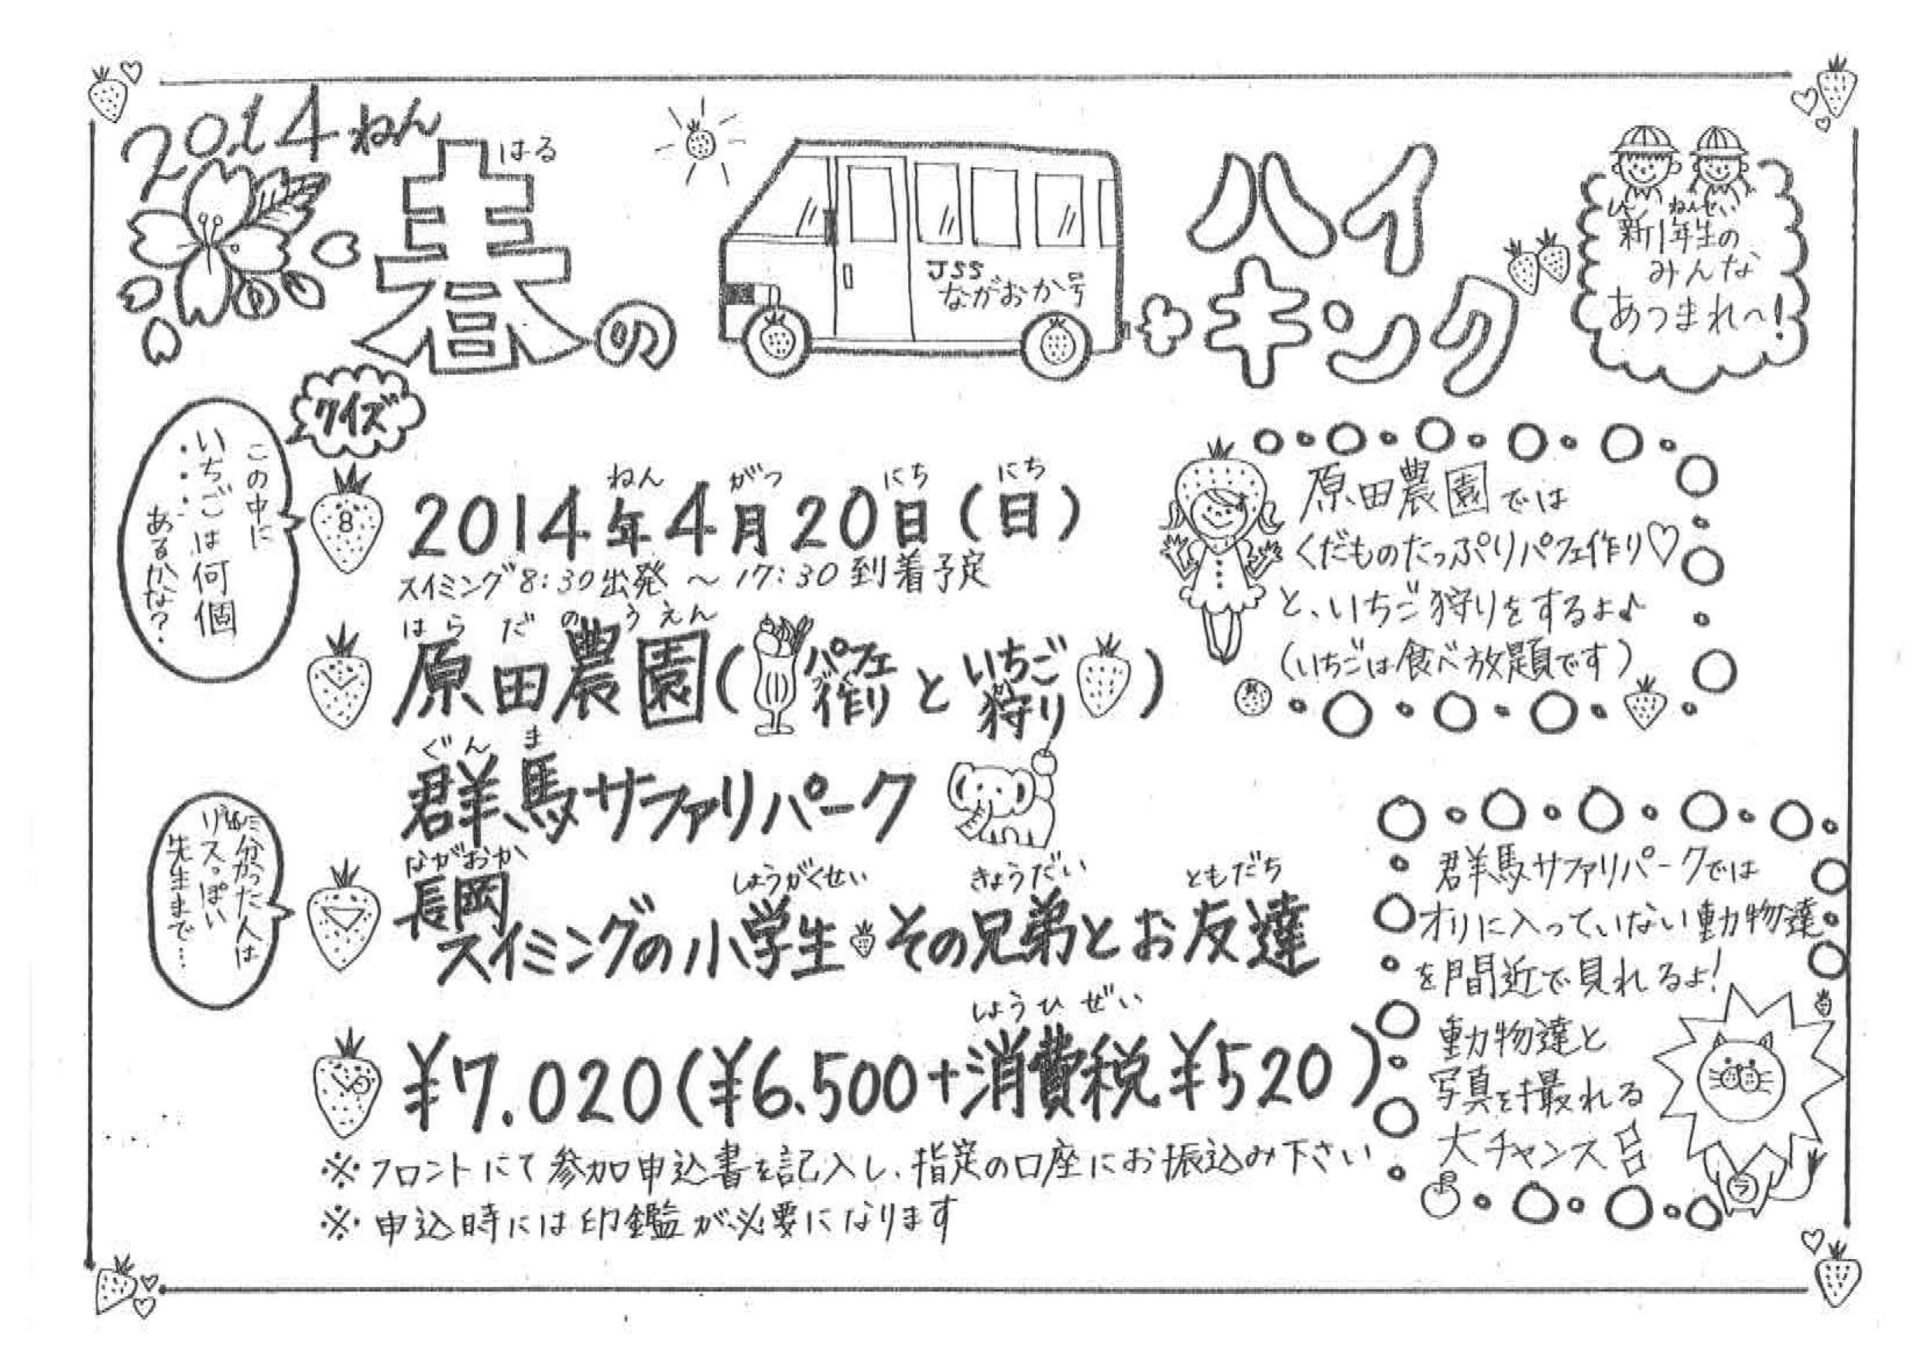 2014ねん
はる
春のハイキング
JSS
ながおか号
しん ねんせい
新1年生の
みんな
あつまれ〜!
クイズ
この中に
いちごは何個
あるかな?
8
ねん がつ にち にち
2014年4月20日(日)
スイミング8:30出発 〜 17:30到着予定
はらだのうえん
原田農園(パフェ作りといちご狩り)
ぐんま
群馬サファリパーク
ながおか しょうがくせい きょうだい ともだち
長岡スイミングの小学生 その兄弟とお友達
しょうひぜい
¥7.020(¥6.500+消費税¥520)
※フロントにて参加申込書を記入し、指定の口座にお振込み下さい
※申込時には印鑑が必要になります
分かった人は
リスっぽい
先生まで…
原田農園では
くだものたっぷりパフェ作り♡
と、いちご狩りをするよ♪
(いちごは食べ放題です)
群馬サファリパークでは
オリに入っていない動物達
を間近で見れるよ!
動物達と
写真を撮れる
大チャンス
ラ